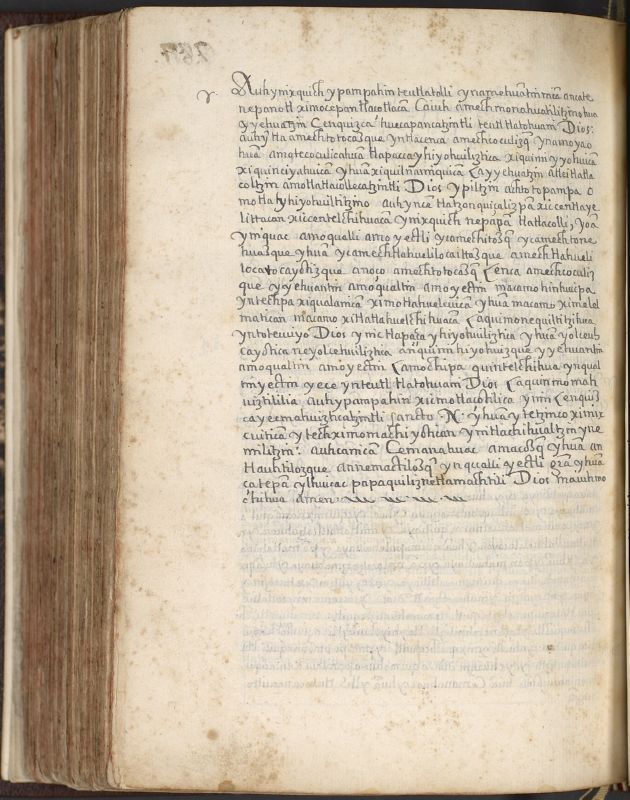 Auh ynixquich ypampahin teutlatolli ynamehuātin nicā ancate
nepanotl ximocepantlaçotlacā Ca iuh amechmonahuatilitzinohua
yyehuatzin Cenquizca huecapancatzintli teutl tlatohuani Dios:
auh yntla amechtotocazque yntlacana amechcocolizq̄ ynamoyao
huā amotecocolicahuā tlapaccayhiyohuiliztica xiquinni yyohuicā
xiquinciyahuicā yhuā xiquilnamiquicā Ca yyehuatzin atle itlatla
coltzin amotlatlaiollecatzintli Dios ypiltzin achtotopampa o
motlayhiyohuiltitzino auh ynce tlatzonquiçalizpā xiccentlaye
littacan xiccentelchihuacā ynixquich nepapā tlatlacolli, yoā
yniquac amoqualli amo yectli ycamechitozq̄ ycamechtone
huazque yhuā ycamechtlahuelilocaittazque amechtlahueli
locatocayotizque anoço amechtotocazq̄ Cenca amechcocoliz
que yyehuantin amoqualtin amoyectin macamo hintuicpa
yntechpa xiqualanicā ximotlahuelcuicā yhuā macamo ximelel
matican macamo xitlatlahuelchihuacā Caquimonequiltitzihua
yntotecuiyo Dios ynic tlapaccayhiyohuiliztica yhuā yolceuh
cayotica neyolcehuiliztica anquimihiyohuizque yyehuantin
amoqualtin amoyectin Camochipa quintelchihua ynqual
tin yectin yece ynteutl tlatohuani Dios Caquinmomah
uiztililia auh ypampahin xicmotlaçotilica ynin Cenquiz
cayecmahuizticatzintli sancto N. yhuā ytetzinco ximix
cuitica ytechximomachiyotican ynitlachihualtzin yne
miliztzin: auh canicā Cemanahuac amacozq̄ yhuā an
tlauhtilozque annemactilozq̄ ynqualli yectli gr̄a yhuā
catepā ylhuicac papaquiliznetlamachtili Dios maiuhmo
chihua amen.